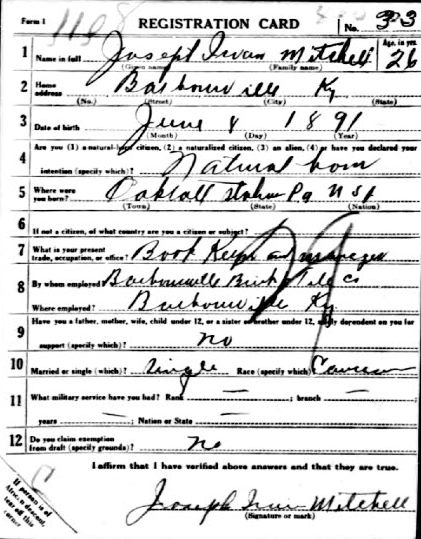 Form 1 1108 REGISTRATION CARD No. 33
1 Name in full Joseph Irvan Mitchell Age, in yrs. 26
(Given name) (Family name)
2 Home address Barbourville Ky
(No.) (Street) (City) (State)
3 Date of birth June 8 1891
(Month) (Day) (Year)
Are you (1) a natural-born citizen, (2) a naturalized citizen, (3) an alien, (4) or have you declared your
4 intention (specify which)? Natural born
5 Where were you born? Pa USA
(Town) (State) (Nation)
6 If not a citizen, of what country are you a citizen or subject?
7 What is your present trade, occupation, or office? Book Keeper and manager
8 By whom employed? Barbourville Brick & Tile Co
Where employed? Barbourville Ky
9 Have you a father, mother, wife, child under 12, or a sister or brother under 12, solely dependent on you for
support (specify which)? no
10 Married or single (which)? single Race (specify which)? Caucasian
11 What military service have you had? Rank — ; branch —
years — ; Nation or State —
12 Do you claim exemption from draft (specify grounds)? no
I affirm that I have verified above answers and that they are true.
Joseph Irvan Mitchell
(Signature or mark)
If person is of
African descent,
tear off this
corner